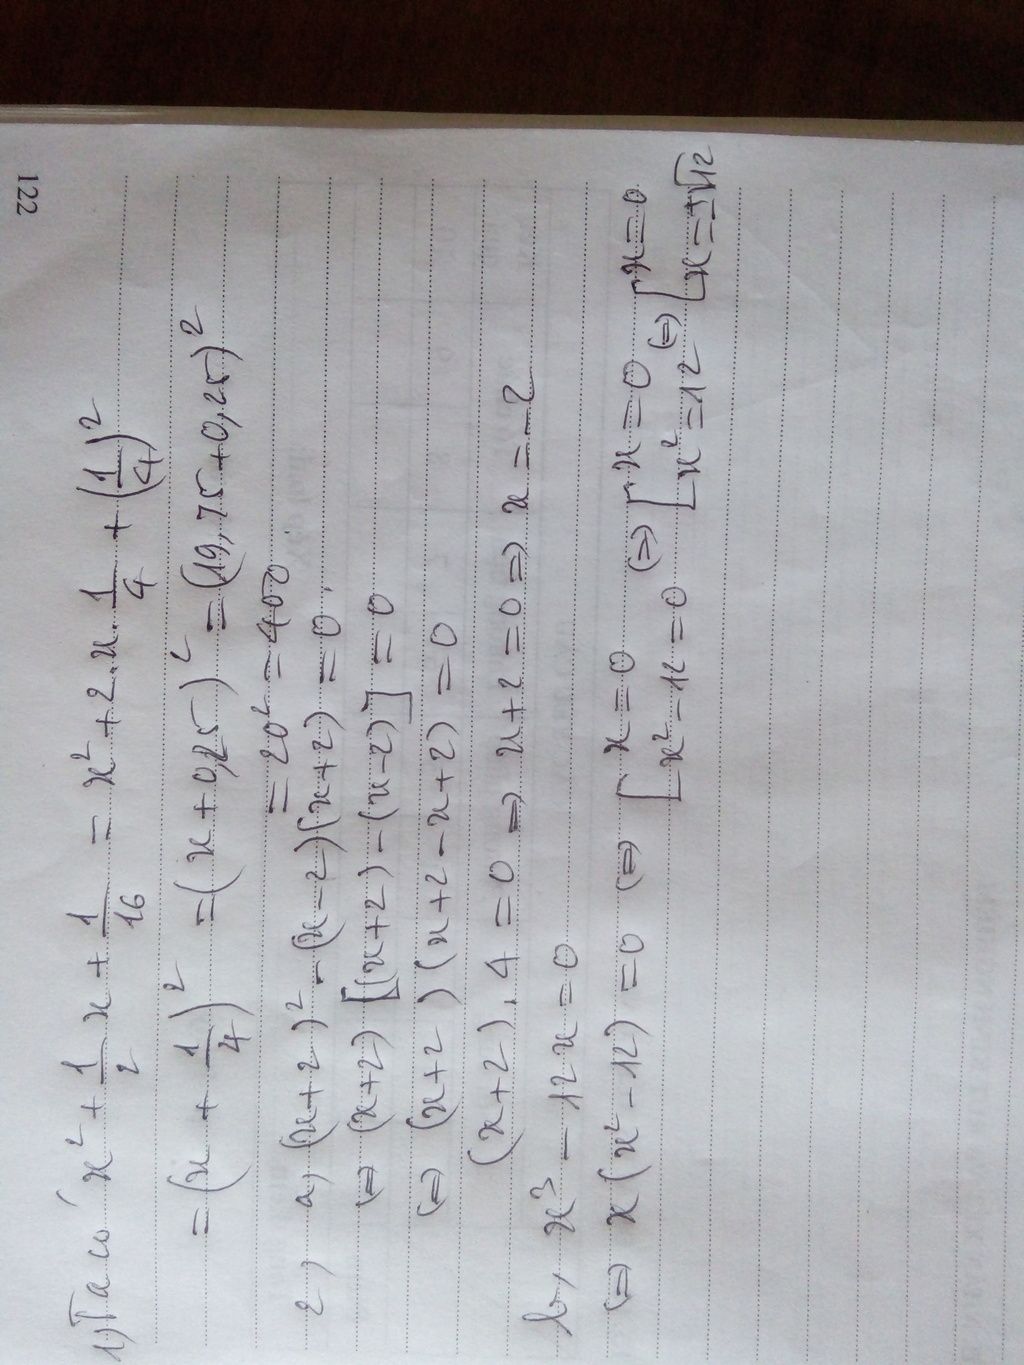 1, Ta có x² + 1/2 x + 1/16 = x² + 2.x.1/4 + (1/4)²
= (x + 1/4)² = (x + 0,25)² = (19,75 + 0,25)²
= 20² = 400
2, a, (x+2)² - (x-2)(x+2) = 0.
(=) (x+2) [(x+2) - (x-2)] = 0
(=) (x+2) (x+2-x+2) = 0
(x+2).4 = 0 => x+2 = 0 => x = -2
b, x³ - 12x = 0
(=) x(x² - 12) = 0 (=) [x = 0 (=) [x = 0 (=) [x = 0
x² - 12 = 0 x² = 12 x = ±√12
122